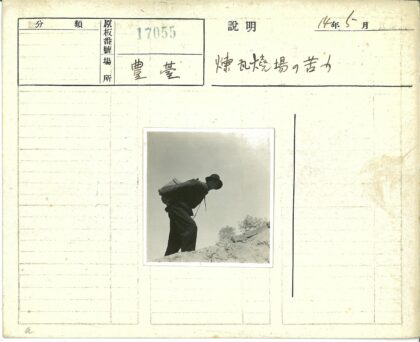 分類
原板番號 17055
場所 豊台
説明
14年5月
煉瓦焼場の苦力
a